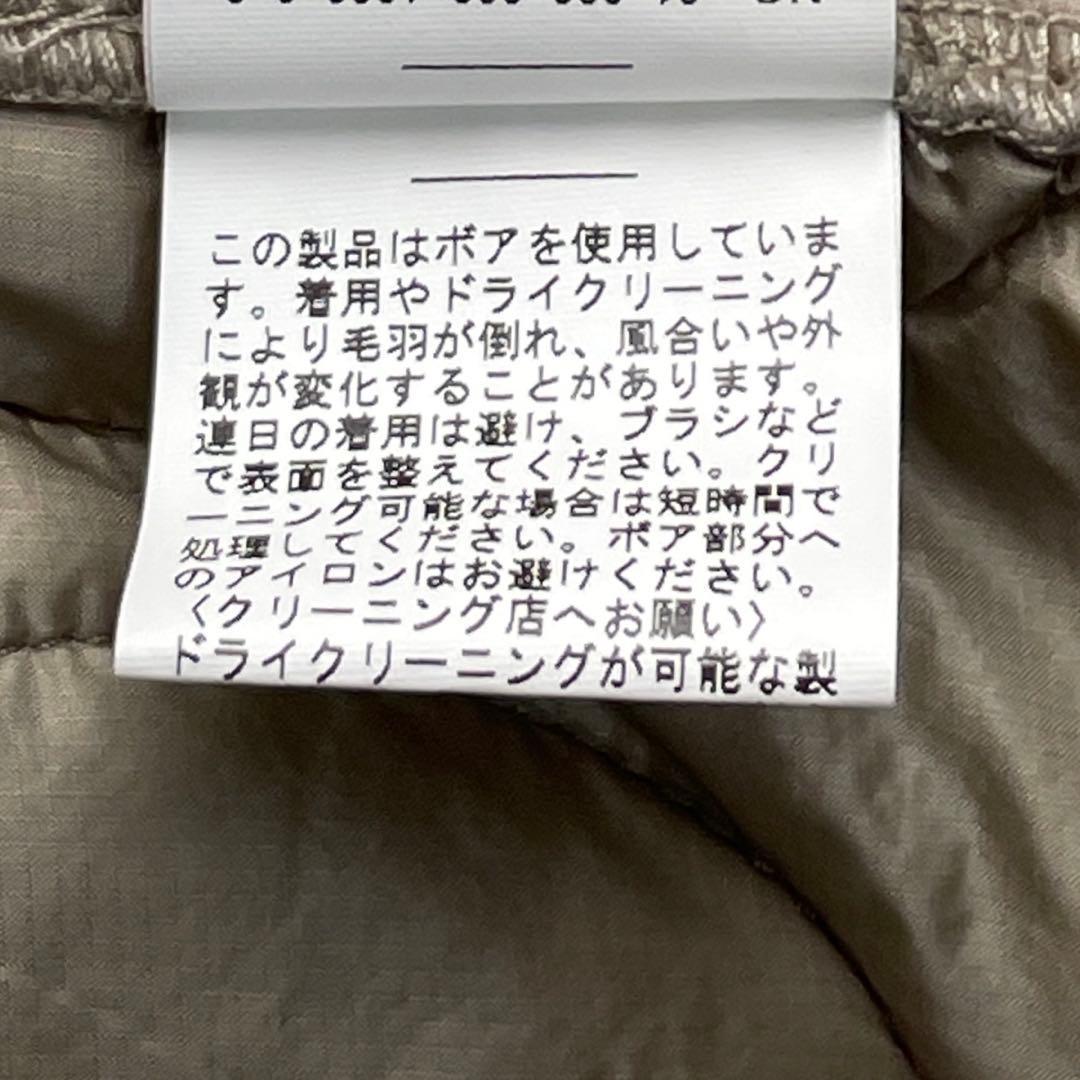 この製品はボアを使用していま
す。着用やドライクリーニング
により毛羽が倒れ、風合いや外
観が変化することがあります。
連日の着用は避け、ブラシなど
で表面を整えてください。クリ
ーニング可能な場合は短時間で
処理してください。ボア部分へ
のアイロンはお避けください。
〈クリーニング店へお願い〉
ドライクリーニングが可能な製